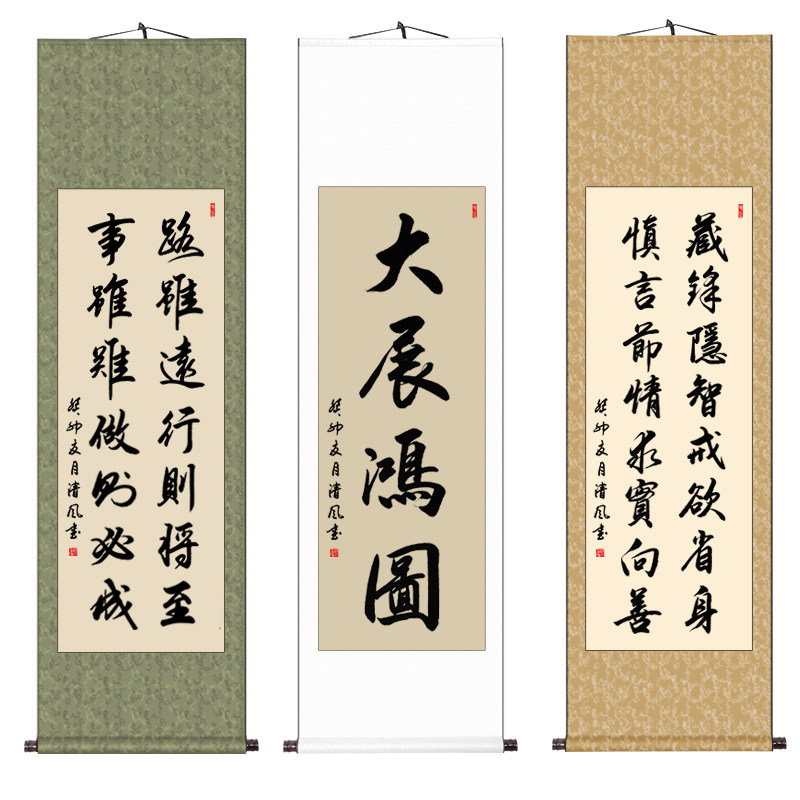 路雖遠行則將至
事雖難做則必成
癸卯夏月清風書
大展鴻圖
癸卯夏月清風書
藏鋒隱智戒欲省身
慎言節情求實向善
癸卯夏月清風書